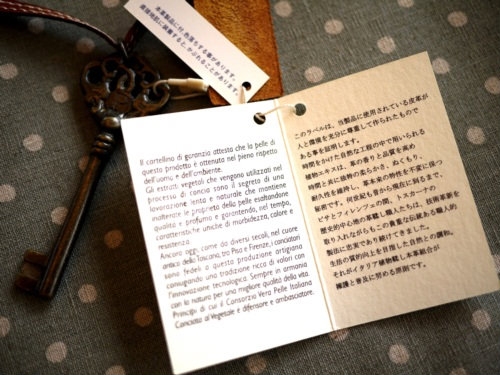 本革製品に付、色落ちする事があります。
直接地肌に装着すると、かぶれることがあります。
Il cartellino di garanzia attesta che la pelle di
questo prodotto è ottenuta nel pieno rispetto
dell'uomo e dell'ambiente.
Gli estratti vegetali che vengono utilizzati nel
processo di concia sono il segreto di una
lavorazione lenta e naturale che mantiene
inalterate le proprietà della pelle esaltandone
qualità e profumo e garantendo, nel tempo,
caratteristiche uniche di morbidezza, calore e
resistenza.
Ancora oggi, come da diversi secoli, nel cuore
antico della Toscana, tra Pisa e Firenze, i conciatori
sono fedeli a questa produzione artigiana
coniugando una tradizione ricca di valori con
l'innovazione tecnologica. Sempre in armonia
con la natura per una migliore qualità della vita.
Principi di cui il Consorzio Vera Pelle Italiana
Conciata al Vegetale è difensore e ambasciatore.
このラベルは、当製品に使用されている皮革が
人と環境を充分に尊重して作られたもので
ある事を証明します。
時間をかけた自然な工程の中で用いられる
植物エキスは、革の香りと品質を高め
時間と共に独特の柔らかさ、ぬくもり、
耐久性を維持し、本革来の特性を不変に保つ
秘密です。何世紀も昔から現在に到るまで、
ピサとフィレンツェの間、トスカーナの
歴史的中心地の革鞣し職人たちは、技術革新を
取り入れながらもこの豊な伝統ある職人的
製法に忠実であり続けてきました。
生活の質的向上を目指した自然との調和。
それがイタリア植物鞣し本革組合が
擁護と普及に努める原則です。